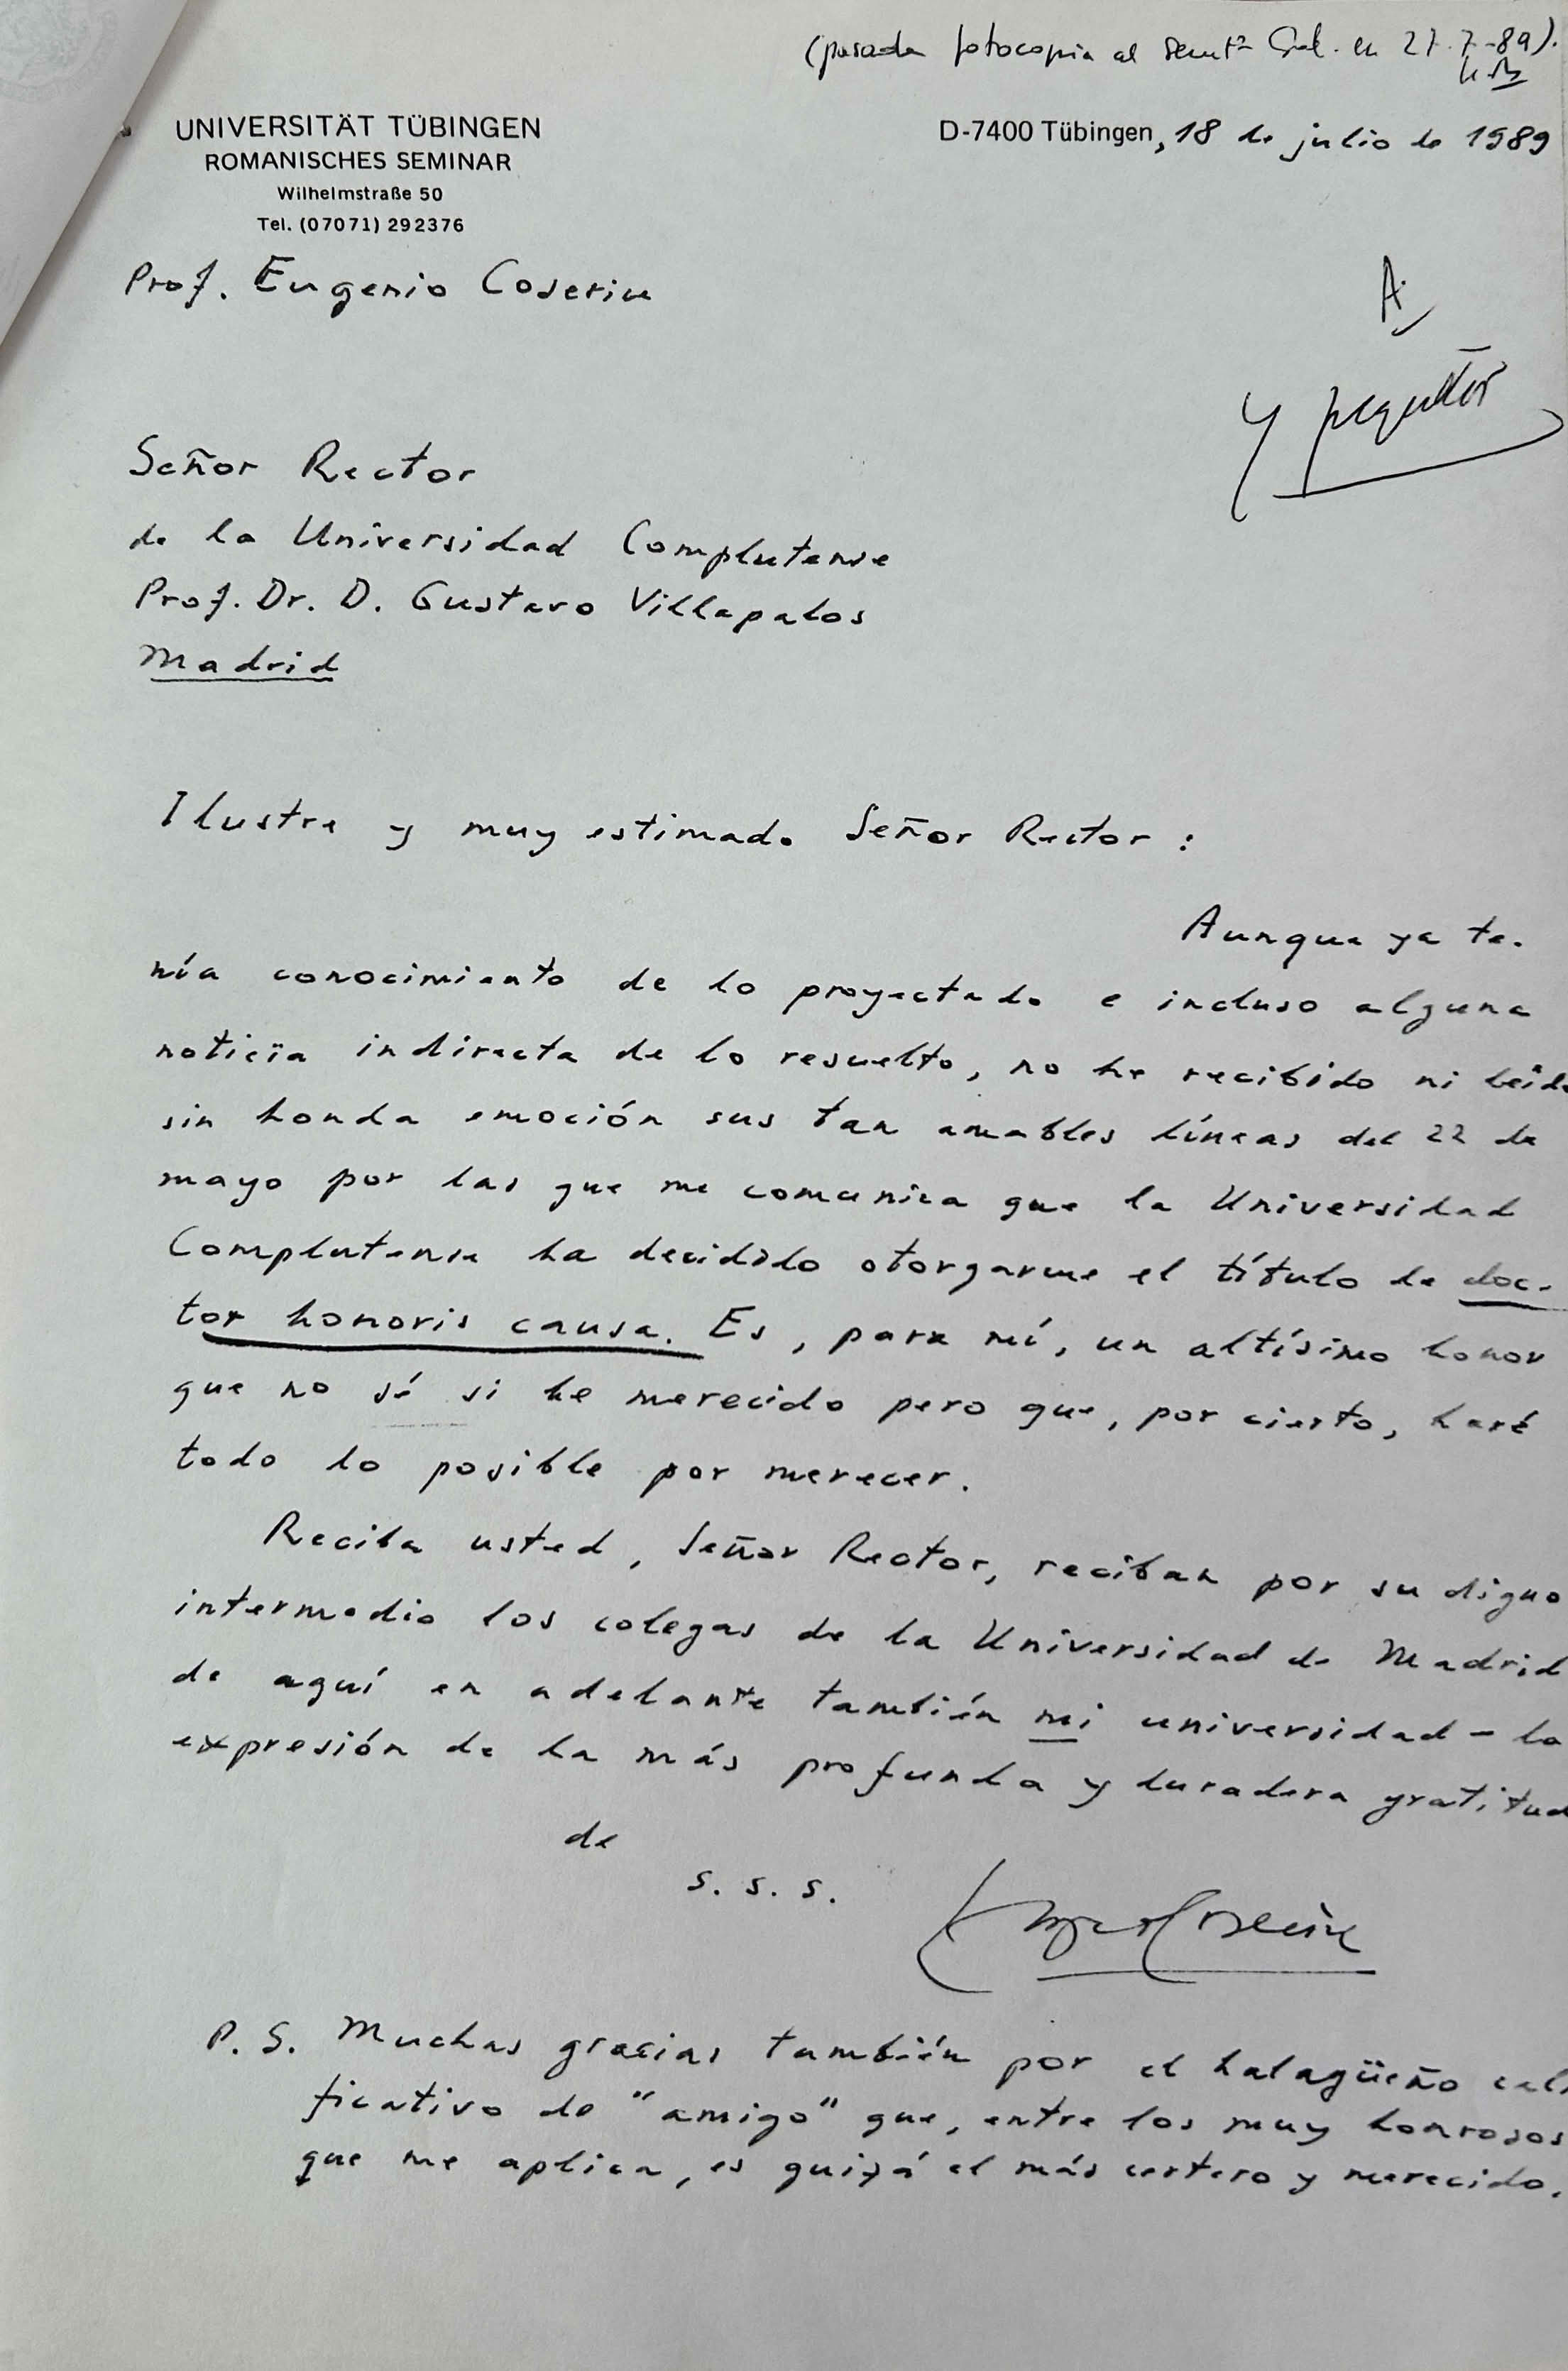 (pasada fotocopia al Secret° Gral. en 27-7-89).
UNIVERSITÄT TÜBINGEN
ROMANISCHES SEMINAR
Wilhelmstraße 50
Tel. (07071) 292376
D-7400 Tübingen, 18 de julio de 1989
Prof. Eugenio Coseriu
A
y
Señor Rector
de la Universidad Complutense
Prof. Dr. D. Gustavo Villapalos
Madrid
Ilustre y muy estimado Señor Rector :
Aunque ya te-
nía conocimiento de lo proyectado e incluso alguna
noticia indirecta de lo resuelto, no he recibido ni leído
sin honda emoción sus tan amables líneas del 22 de
mayo por las que me comunica que la Universidad
Complutense ha decidido otorgarme el título de doc-
tor honoris causa. Es, para mí, un altísimo honor
que no sé si he merecido pero que, por cierto, haré
todo lo posible por merecer.
Reciba usted, Señor Rector, reciban por su digno
intermedio los colegas de la Universidad de Madrid
de aquí en adelante también mi universidad – la
expresión de la más profunda y duradera gratitud
de
s. s. s.
P. S. Muchas gracias también por el halagüeño cali
ficativo de "amigo" que, entre los muy honrosos
que me aplica, es quizá el más certero y merecido.